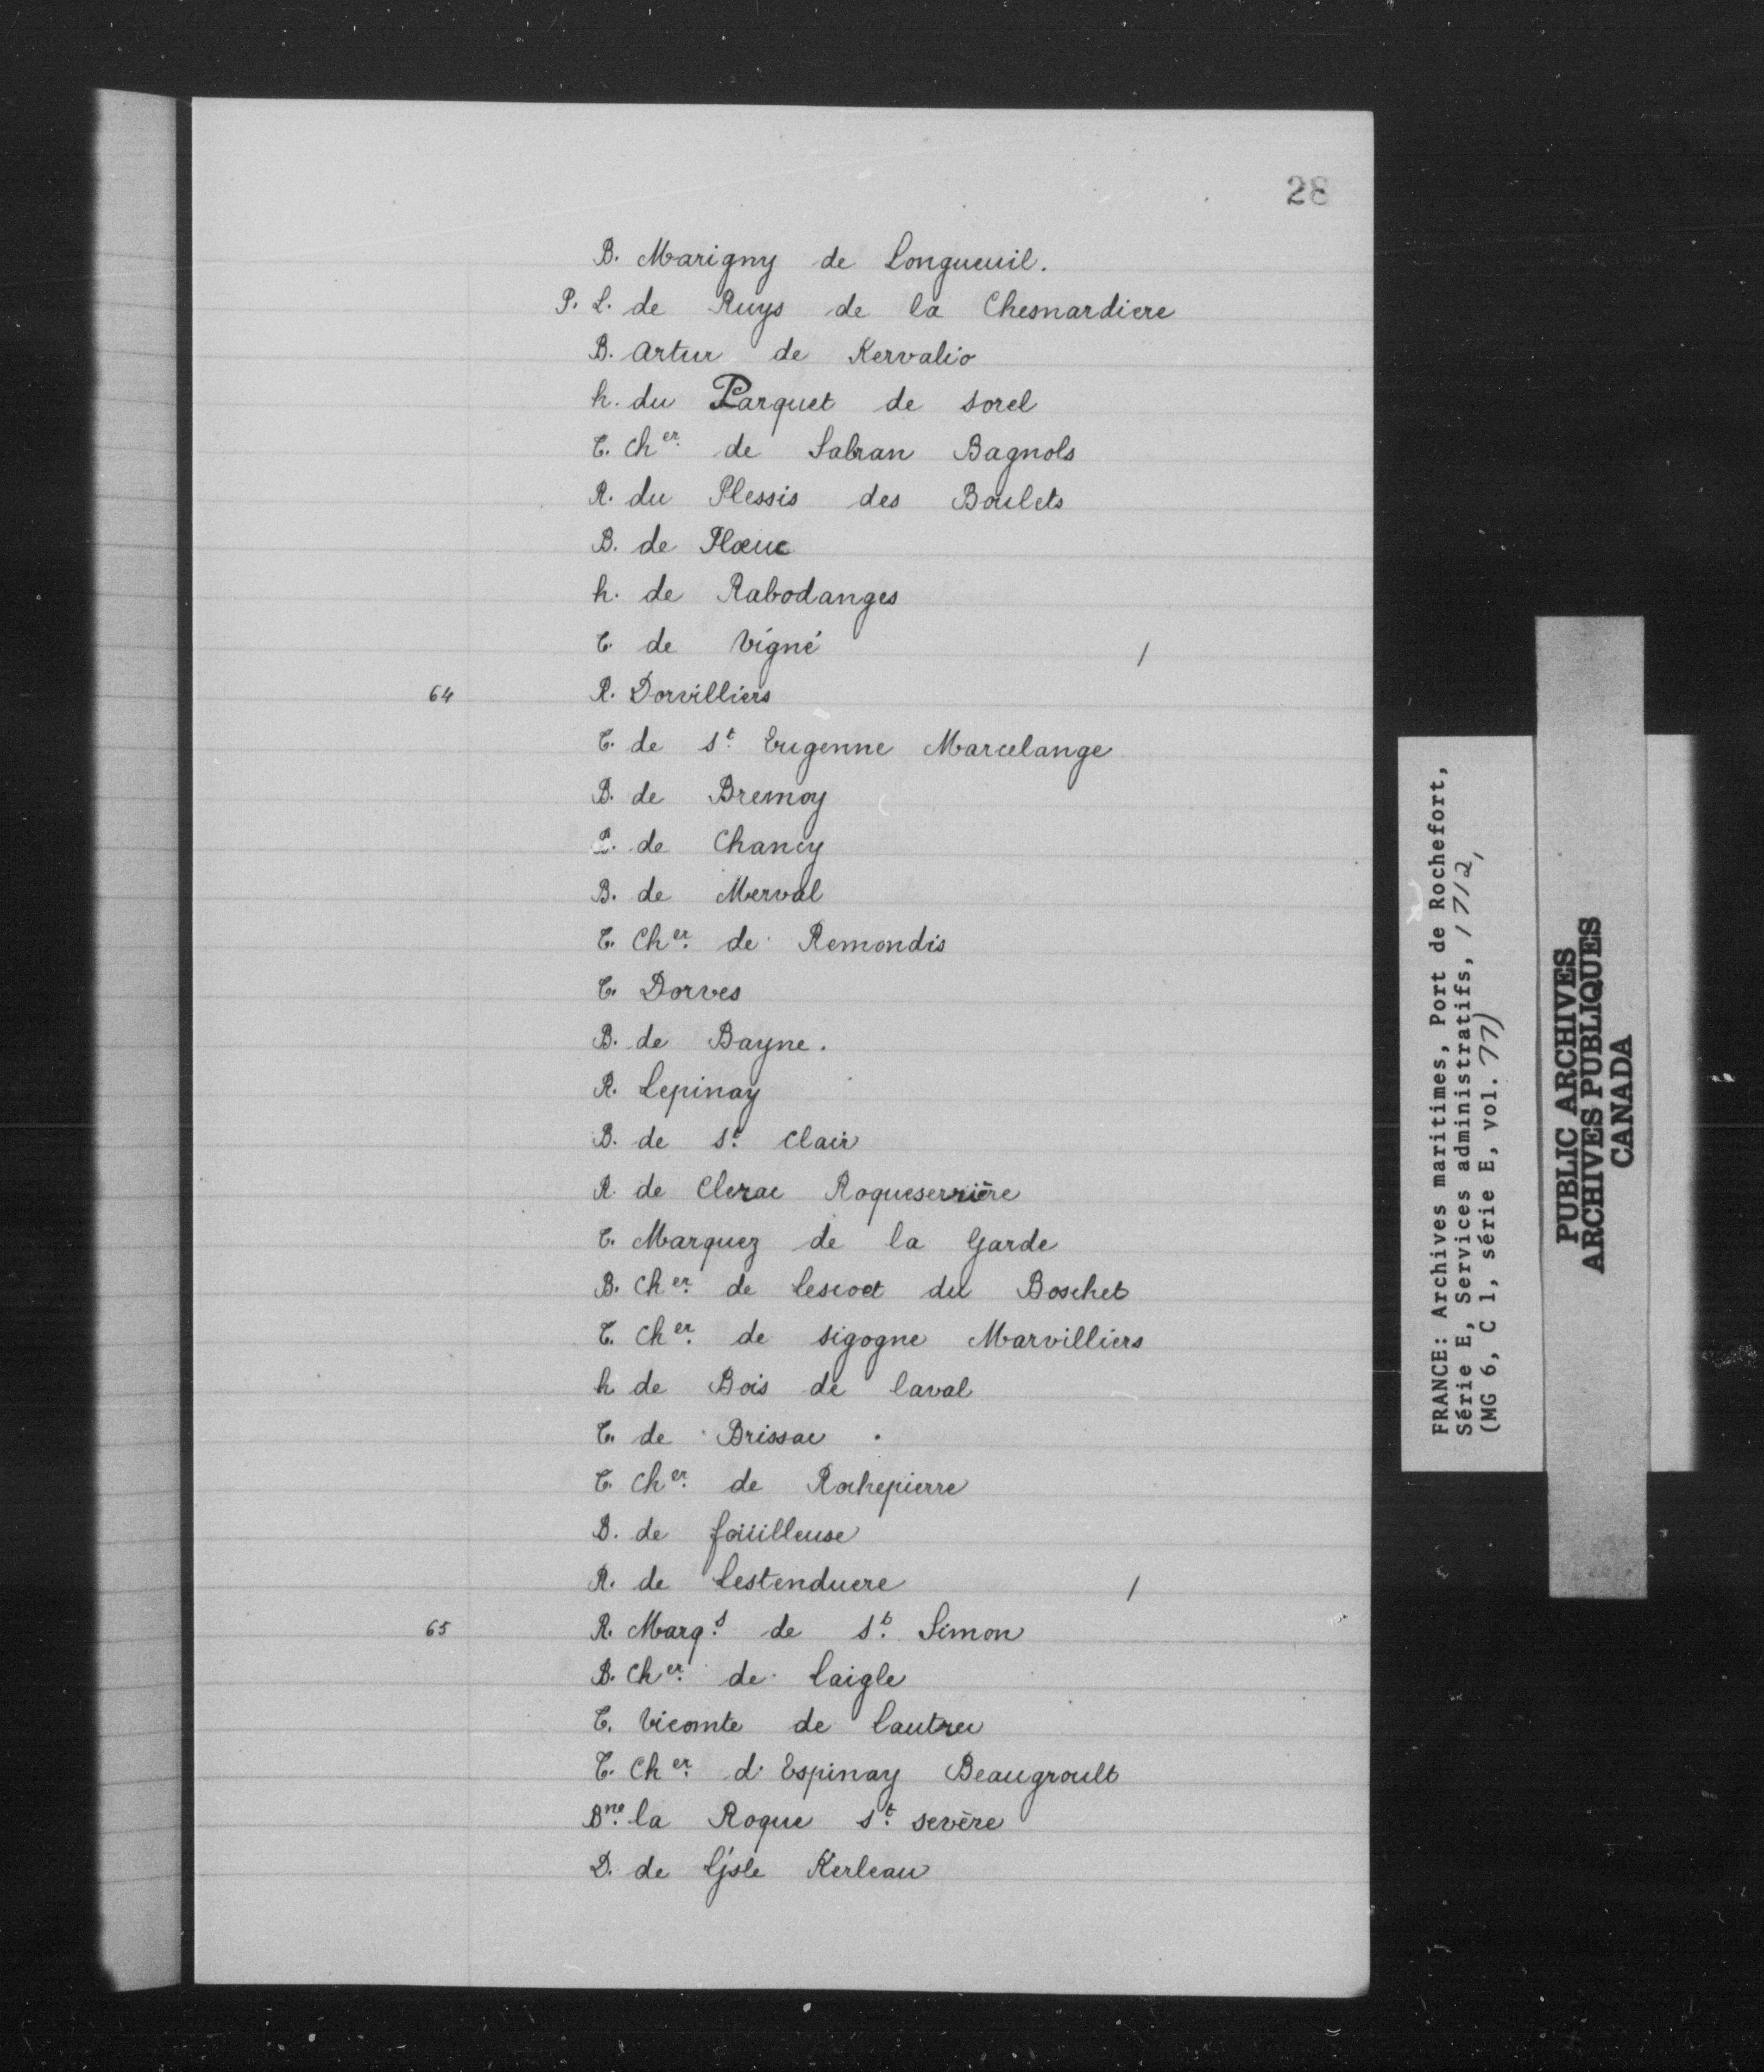 28
B. Marigny de Longueuil.
P. L. de Ruys de la Chesnardiere
B. Artur de Kervalio
h. du Parquet de Sorel
T. Cher. de Sabran Bagnols
R. du Plessis des Boulets
B. de Plœuc
h. de Rabodanges
T. de Vigné /
64 R. Dorvilliers
T. de St. Eugenne Marcelange
B. de Bremoy
de Chancy
B. de Merval
T. Cher. de Remondis
T. Dorves
B. de Bayne.
R. Lepinay
B. de St. Clair
R. de Clerac Roqueserrière
T. Marquez de la Garde
B. Cher. de Lescoet du Boschet
T. Cher. de Sigogne Marvilliers
h de Bois de Laval
T. de Brissac .
T. Cher. de Rochepierre
B. de foüilleuse
R. de Lestenduere /
65 R. Marqs. de St. Simon
B. Cher. de Laigle
T. Vicomte de Lautrec
T. Cher. d'Espinay Beaugroult
Bne. la Roque St. Sevère
D. de L'isle Kerleau
FRANCE: Archives maritimes, Port de Rochefort,
Série E, Services administratifs, 1712,
(MG 6, C 1, série E, vol. 77)
PUBLIC ARCHIVES
ARCHIVES PUBLIQUES
CANADA